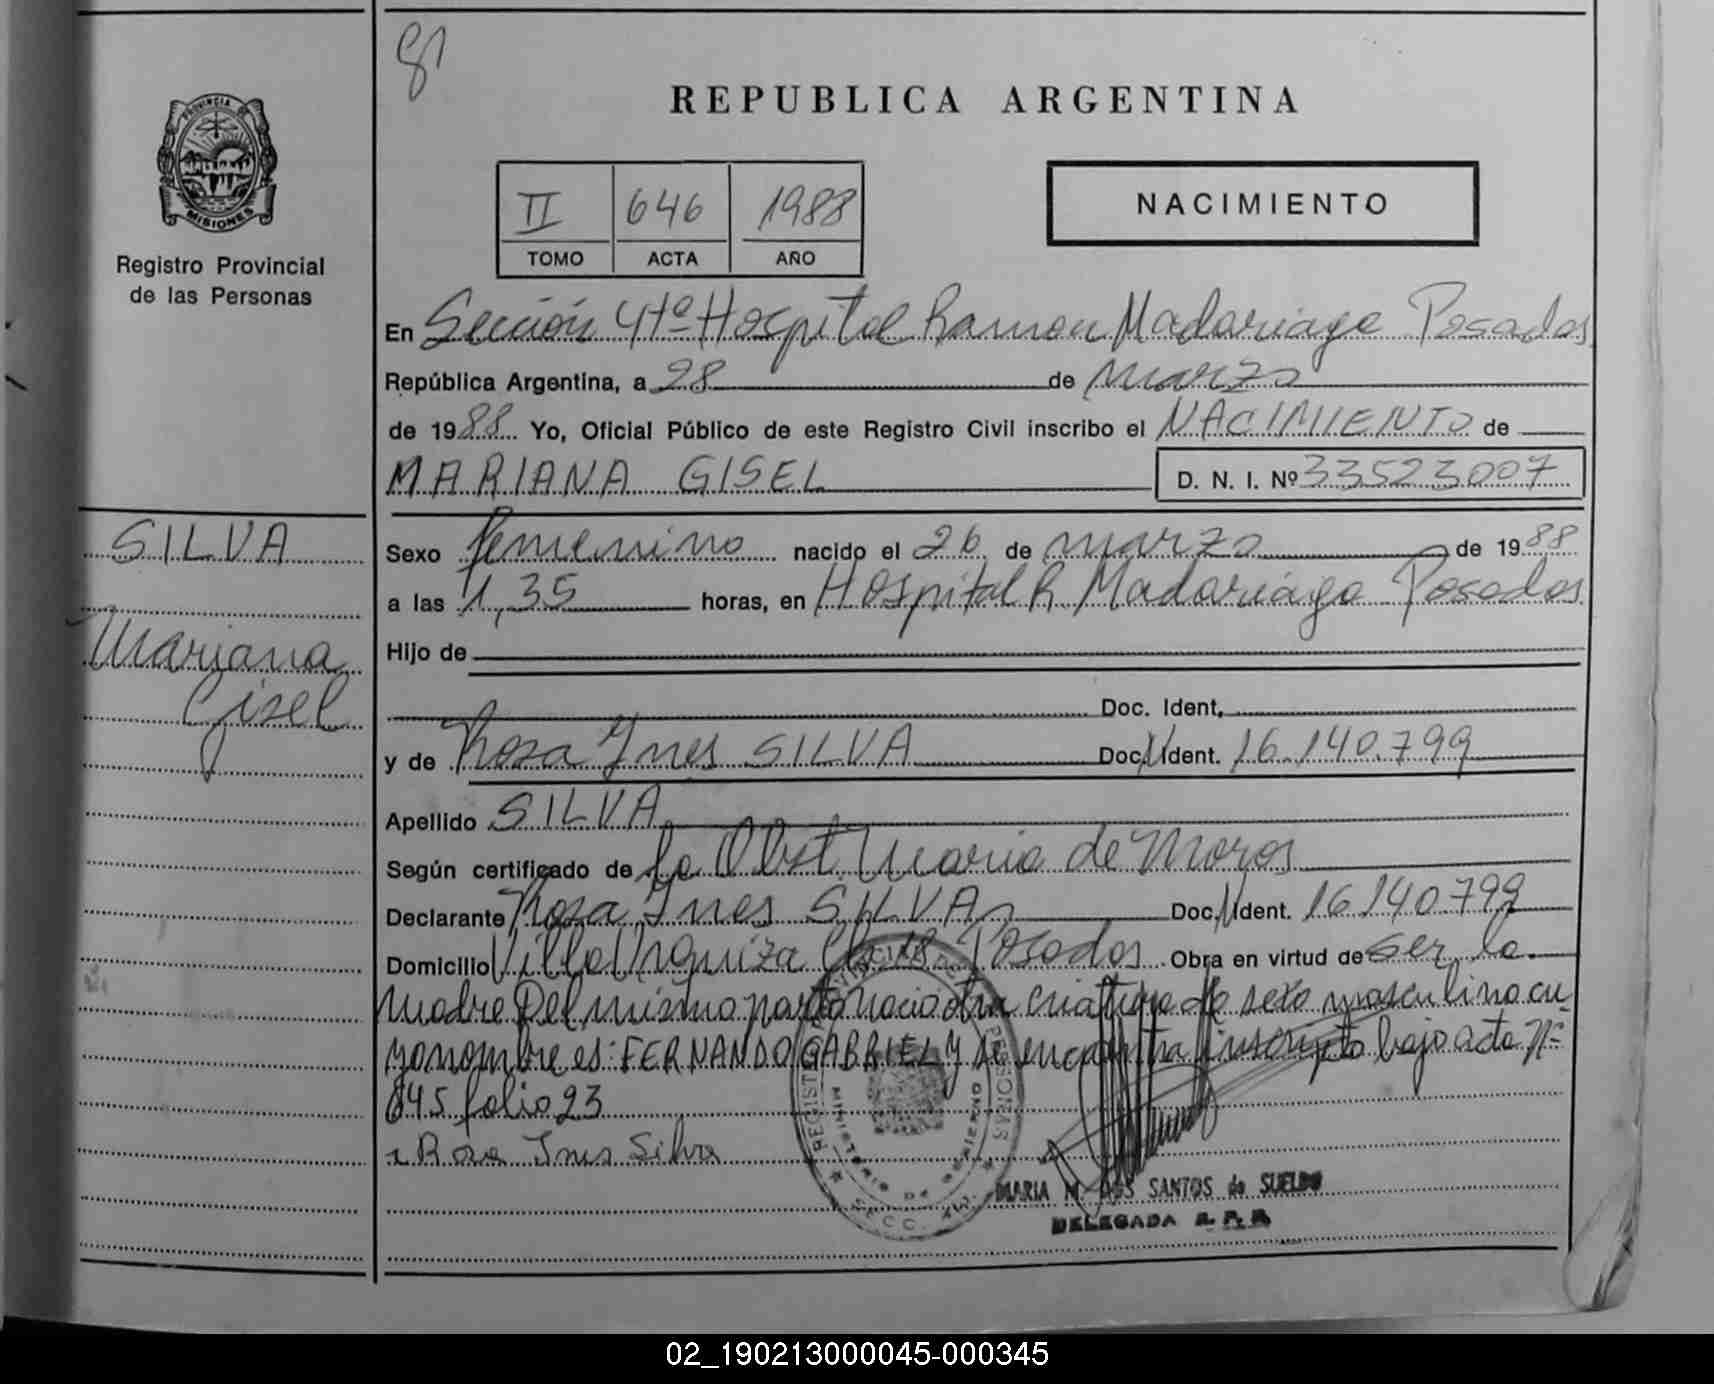 81
REPUBLICA ARGENTINA
PROVINCIA DE
MISIONES
Registro Provincial
de las Personas
II 646 1988
TOMO ACTA AÑO
NACIMIENTO
En Sección 4ta Hospital Ramon Madariaga Posadas
República Argentina, a 28 de marzo
de 1988 Yo, Oficial Público de este Registro Civil inscribo el NACIMIENTO de
MARIANA GISEL D. N. I. Nº 33523007
SILVA
Mariana
Gisel
Sexo femenino nacido el 26 de marzo de 1988
a las 1,35 horas, en Hospital R Madariaga Posadas
Hijo de
Doc. Ident.
y de Rosa Ines SILVA Doc. Ident. 16.140.799
Apellido SILVA
Según certificado de la Obst. Maria de Moros
Declarante Rosa Ines SILVA Doc. Ident. 16.140.799
Domicilio Villa Urquiza Posadas Obra en virtud de ser la
madre Del mismo parto nacio otra criatura de sexo masculino cu
yo nombre es: FERNANDO GABRIEL y se encuentra inscripto bajo acta Nº
645 folio 23
Rosa Ines Silva
MARIA M. DOS SANTOS de SUELDO
DELEGADA R. P. P.
MINISTERIO DE GOBIERNO
02_190213000045-000345